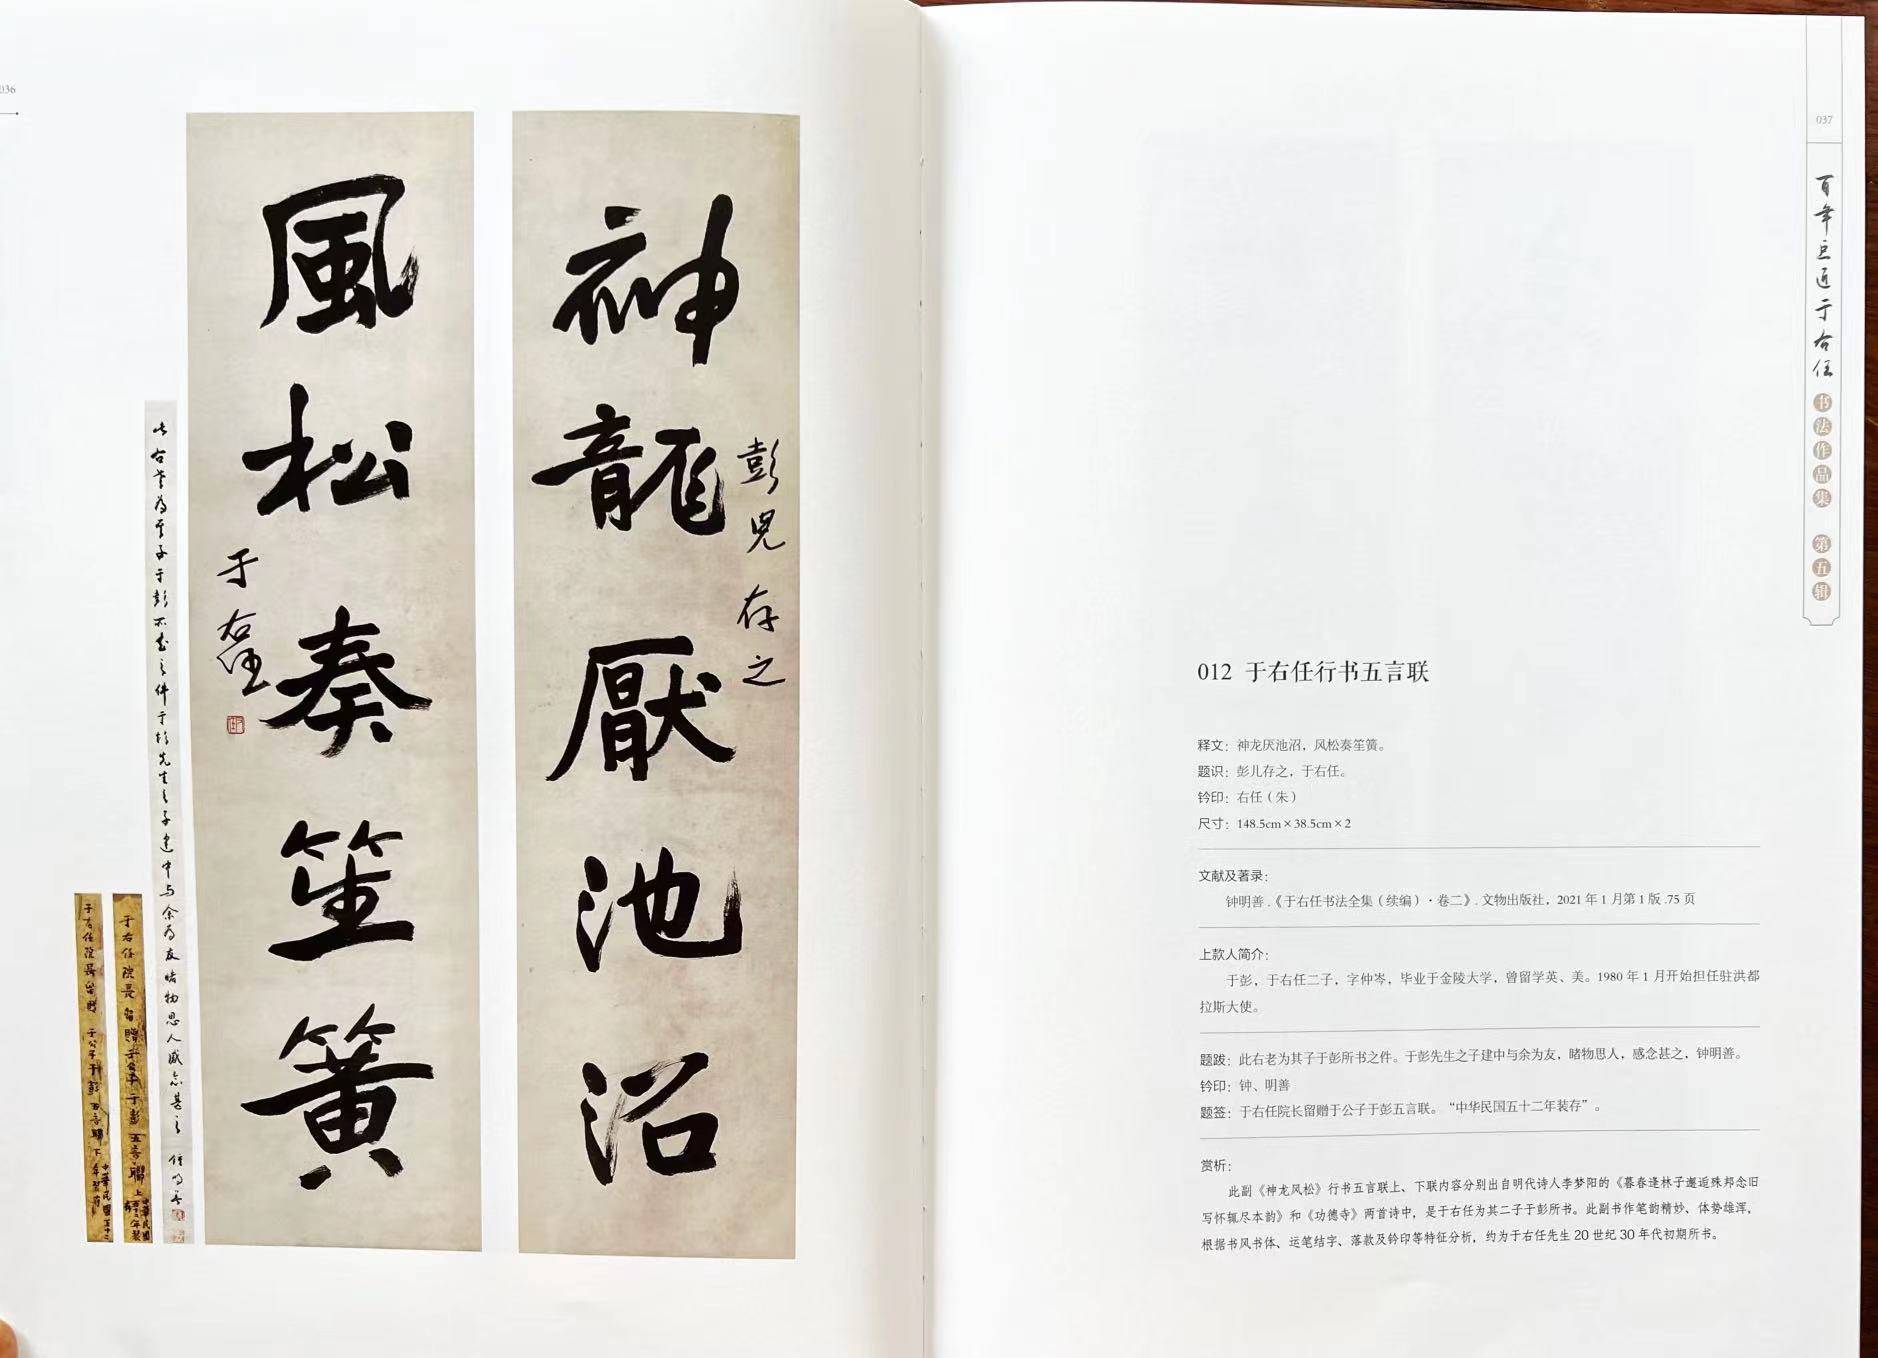 036
神龍厭池沼
彭兒存之
風松奏笙簧
于右任
此右老为其子于彭所书之件于彭先生之子建中与余为友睹物思人感念甚之 钟明善
于右任院長留贈于公子于彭五言聯上
中華民國五十二年裝存
于右任院長留贈于公子于彭五言聯下
中華民國五十二年裝存
037
百年巨匠于右任
书法作品集 第五辑
012 于右任行书五言联
释文：神龙厌池沼，风松奏笙簧。
题识：彭儿存之，于右任。
钤印：右任（朱）
尺寸：148.5cm×38.5cm×2
文献及著录：
钟明善.《于右任书法全集（续编）·卷二》. 文物出版社，2021 年 1 月第 1 版 .75 页
上款人简介：
于彭，于右任二子，字仲岑，毕业于金陵大学，曾留学英、美。1980 年 1 月开始担任驻洪都
拉斯大使。
题跋：此右老为其子于彭所书之件。于彭先生之子建中与余为友，睹物思人，感念甚之，钟明善。
钤印：钟、明善
题签：于右任院长留赠于公子于彭五言联。“中华民国五十二年装存”。
赏析：
此副《神龙风松》行书五言联上、下联内容分别出自明代诗人李梦阳的《暮春逢林子邂逅殊邦念旧
写怀辄尽本韵》和《功德寺》两首诗中，是于右任为其二子于彭所书。此副书作笔韵精妙、体势雄浑，
根据书风书体、运笔结字、落款及钤印等特征分析，约为于右任先生 20 世纪 30 年代初期所书。